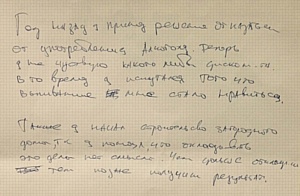 Год назад я принял решение отказаться
от употребления алкоголя. Теперь
я не чувствую какого либо дискомфорта
В то время я испугался того что
выпивание мне стало нравиться.
Также я начал строительство загородного
дома, т.к. я понял, что откладывать
это дело нет смысла. Чем дольше откладываешь
тем позже получишь результат.